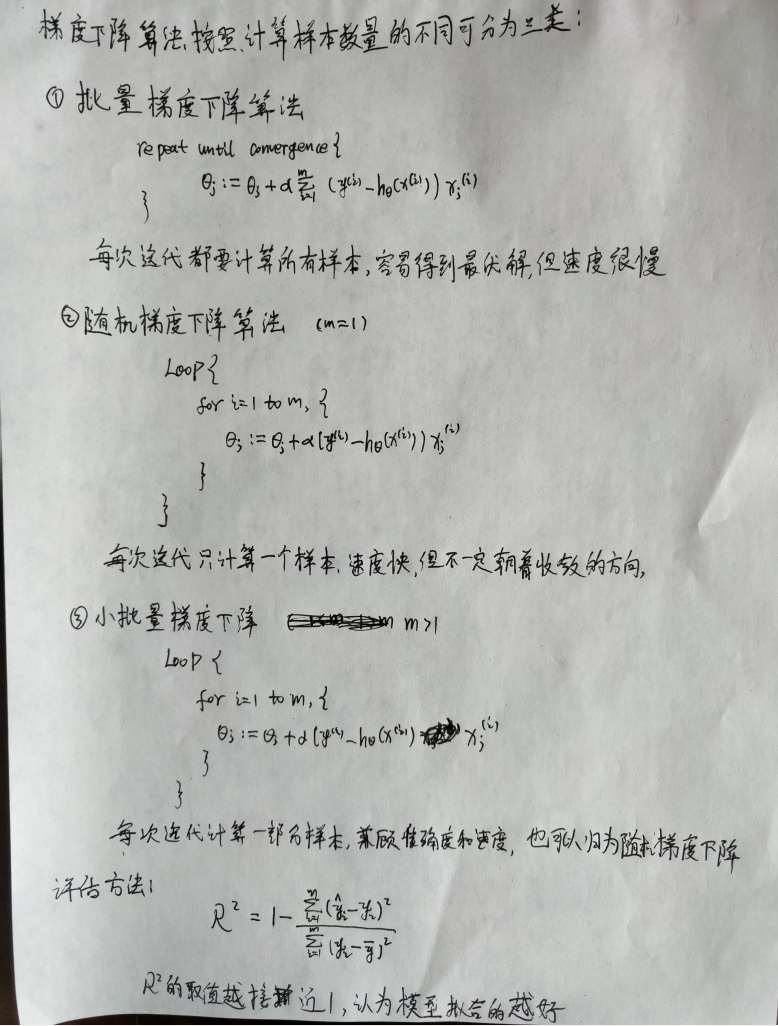 梯度下降算法按照计算样本数量的不同可分为三类：
① 批量梯度下降算法
repeat until convergence {
θj := θj + α Σ_{i=1}^{m} (y^(i) - hθ(x^(i))) xj^(i)
}
每次迭代都要计算所有样本，容易得到最优解，但速度很慢
② 随机梯度下降算法 (m=1)
Loop {
for i=1 to m, {
θj := θj + α (y^(i) - hθ(x^(i))) xj^(i)
}
}
每次迭代只计算一个样本，速度快，但不一定朝着收敛的方向。
③ 小批量梯度下降 m>1
Loop {
for i=1 to m, {
θj := θj + α (y^(i) - hθ(x^(i)) xj^(i)
}
}
每次迭代计算一部分样本，兼顾准确度和速度，也可以归为随机梯度下降
评估方法：
R² = 1 - Σ_{i=1}^{m} (ŷi - yi)² / Σ_{i=1}^{m} (yi - ȳ)²
R²的取值越接近1，认为模型拟合的越好